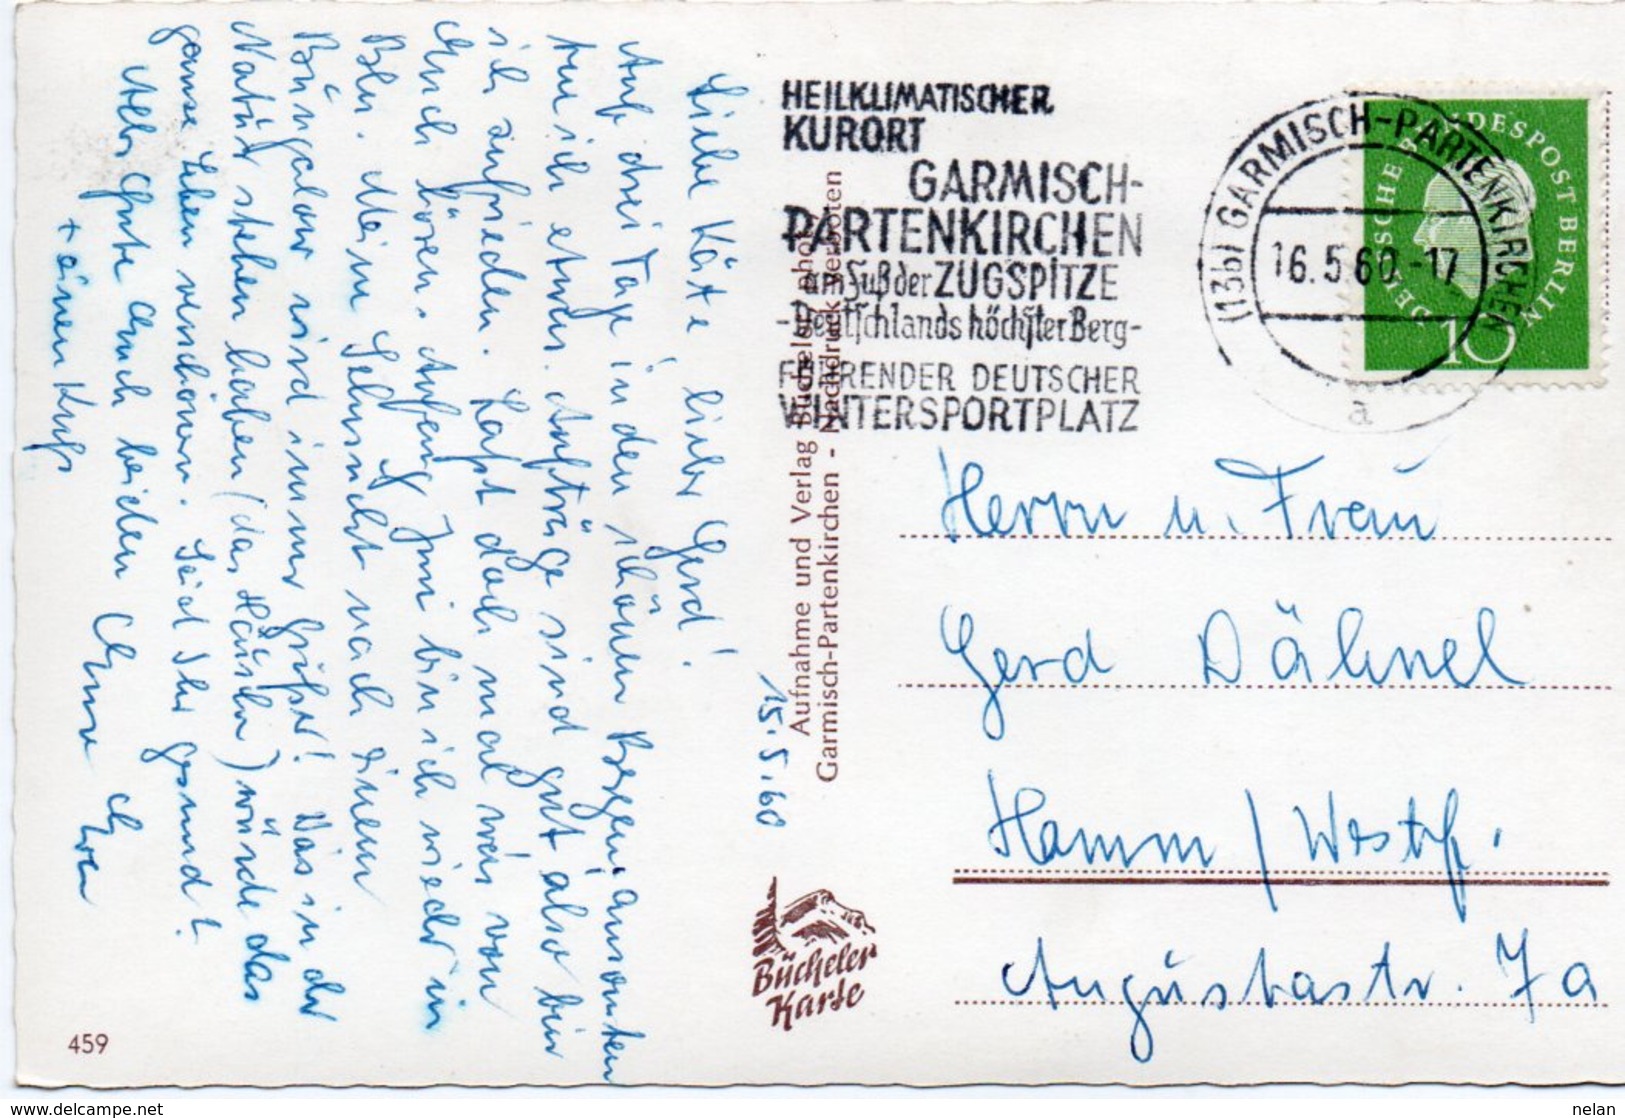 15.5.60
Liebe Käte lieber Gerd!
Auf drei Tage in den schönen Bergen, ansonsten
tue ich etwas. Aufträge sind gut also bin
ich zufrieden. Laßt doch mal was von
Euch hören. Anfang Juni bin ich wieder in
Bln. Mein Sehnsucht nach einem
Bungalow wird immer größer! Das in der
Natur stehen haben (das Häusle) würde das
ganze Leben verschönern. Seid Ihr gesund?
Alles Gute Euch beiden Eure
+ einen Kuß
459
HEILKLIMATISCHER
KURORT
GARMISCH-
PARTENKIRCHEN
am Fuß der ZUGSPITZE
-Deutschlands höchster Berg-
FÜHRENDER DEUTSCHER
WINTERSPORTPLATZ
(13b) GARMISCH-PARTENKIRCHEN
16.5.60.-17
a
DEUTSCHE BUNDESPOST BERLIN
10
Aufnahme und Verlag Bücheler photo
Garmisch-Partenkirchen - Nachdruck verboten
Bücheler
Karte
Herrn u. Frau
Gerd Dähnel
Hamm / Westf.
Augustastr. 7a
www.delcampe.net
nelan